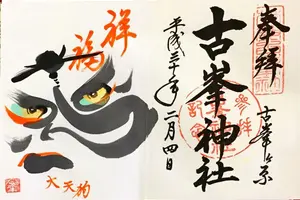 奉拝
古峯ヶ原
古峯神社
平成三十年二月四日
参拝
記念
祥福
大天狗